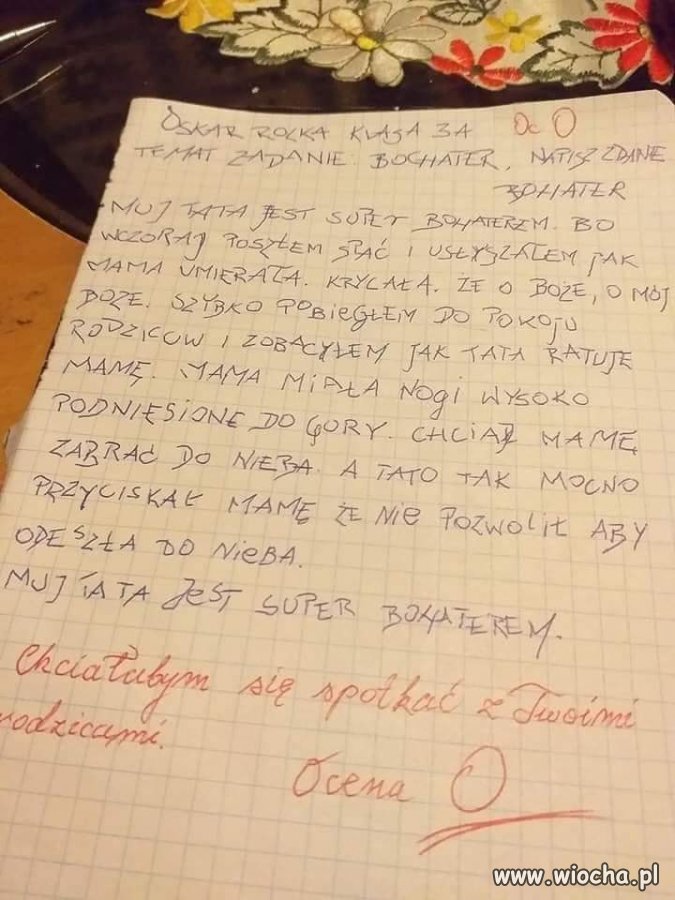 OSKAR ROLKA KLASA 3A Oc O
TEMAT ZADANIE BOCHATER, NAPISZ ZDANE
BOHATER
MUJ TATA JEST SUPER BOHATEREM. BO
WCZORAJ POSZŁEM SPAĆ I USŁYSZAŁEM JAK
MAMA UMIERAŁA. KRYCAŁA. ŻE O BOŻE, O MÓJ
BOŻE. SZYBKO POBIEGŁEM DO POKOJU
RODZICÓW I ZOBACYŁEM JAK TATA RATUJE
MAMĘ. MAMA MIAŁA NOGI WYSOKO
PODNIESIONE DO GÓRY. CHCIAŁ MAMĘ
ZABRAĆ DO NIEBA. A TATO TAK MOCNO
PRZYCISKAŁ MAMĘ ŻE NIE POZWOLIŁ ABY
ODESZŁA DO NIEBA.
MUJ TATA JEST SUPER BOHATEREM.
Chciałabym się spotkać z Twoimi
rodzicami.
Ocena O
www.wiocha.pl